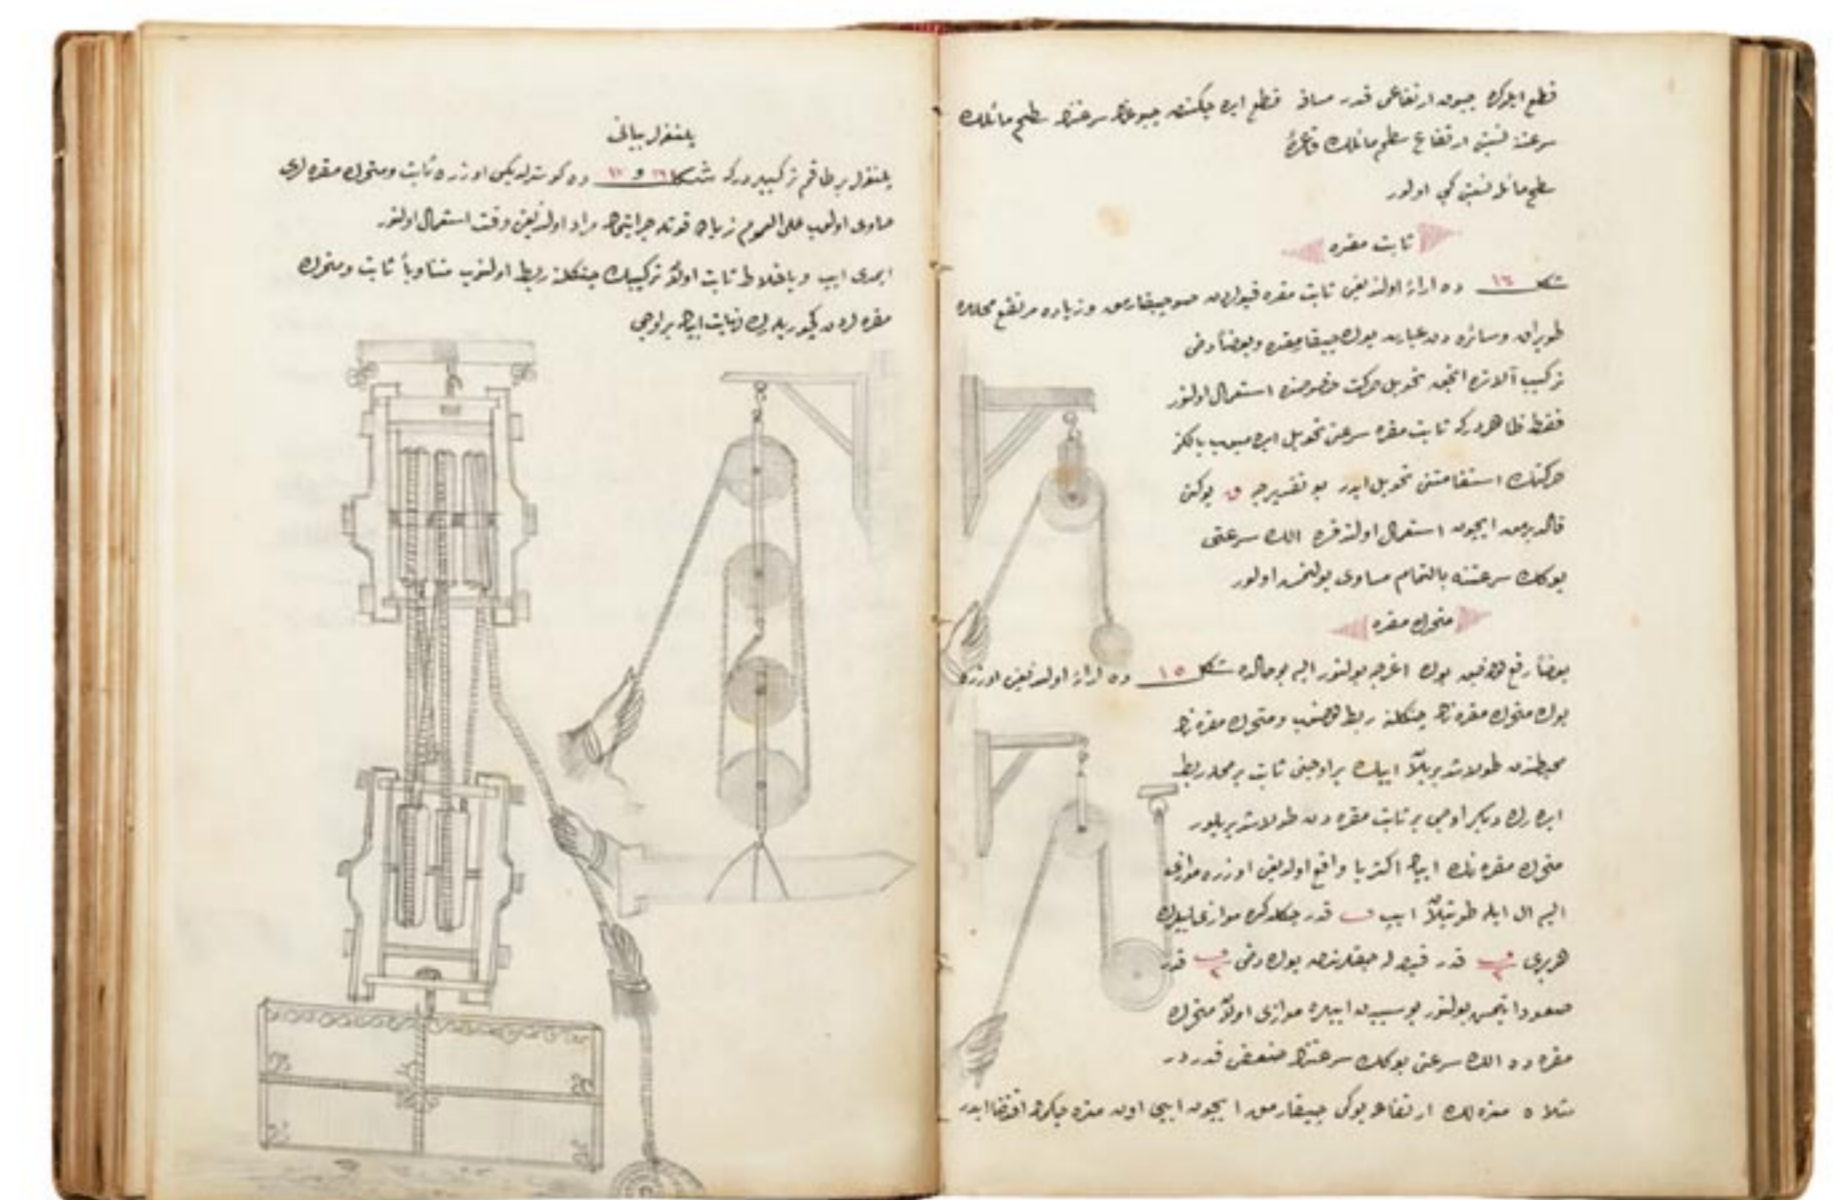 قطع ایلرکن جسمك ارتفاعی قدر مسافه قطع ایده جکندن سرعتنڭ سطح مائلك
سرعتنه نسبتی ارتفاع سطح مائلك
سطح مائله نسبتی کبی اولور
ثابت مقره
شکل ١٤ ده ارائه اولندیغی ثابت مقره قیولردن صو چیقارمق و زیاده مرتفع محللره
طوپراق وسائره دن عبارت یوك چیقارمقده وبعضاً دخی
ترکیب آلاتده انجق تحویل حرکت خصوصنده استعمال اولنور
فقط ظاهردرکه ثابت مقره سرعتی تحویل ایده میوب یالکز
حرکتك استقامتنی تحویل ایدر بو تقدیرجه ق یوکنی
قالدیرمق ایچون استعمال اولندقده الك سرعتی
یوکك سرعتنه بالتمام مساوی بولنمش اولور
متحرك مقره
بعضاً رفع اولنه جق یوك اغرجه بولنور ایسه بو حالده شکل ١٥ ده ارائه اولندیغی اوزره
یوك متحرك مقره نڭ چنکلنه ربط اولنوب ومتحرك مقره نڭ
محیطندن طولاشدیریلان ایپك بر اوجنی ثابت بر محله ربط
ایده رك دیکر اوجی بر ثابت مقره دن طولاشدیریلور
متحرك مقره نك ایپلری اکثریا واقع اولدیغی اوزره موازی
ایسه ال ایله طوتیلان ایپ ف قدر چکلدکده موازی ایپلرك
هربری ف/٢ قدر قیصه له جقلرندن یوك دخی ف/٢ قدر
صعود ایتمش بولنور بو سببدن ایپلری موازی اولان متحرك
مقره ده الك سرعتی یوکك سرعتنڭ ضعفی قدردر
مثلا ٥ متره لك ارتفاعه یوکی چیقارمق ایچون ایپی اون متره چکمك اقتضا ایدر
پلنغه لر بیانی
پلنغه لر بر طاقم ترکیبدرکه شکل ١٦ و ١٧ ده کوستردیکی اوزره ثابت ومتحرك مقره لری
حاوی اولوب علی العموم زیاده قوتلر اجرا ایتمك مراد اولندیغی وقت استعمال اولنور
ایمدی ایپ ویا خلاط ثابت اولان ترکیبك چنکلنه ربط اولنوب متناوباً ثابت ومتحرك
مقره لردن کچوریلەرك نهایت ایپك بر اوجی